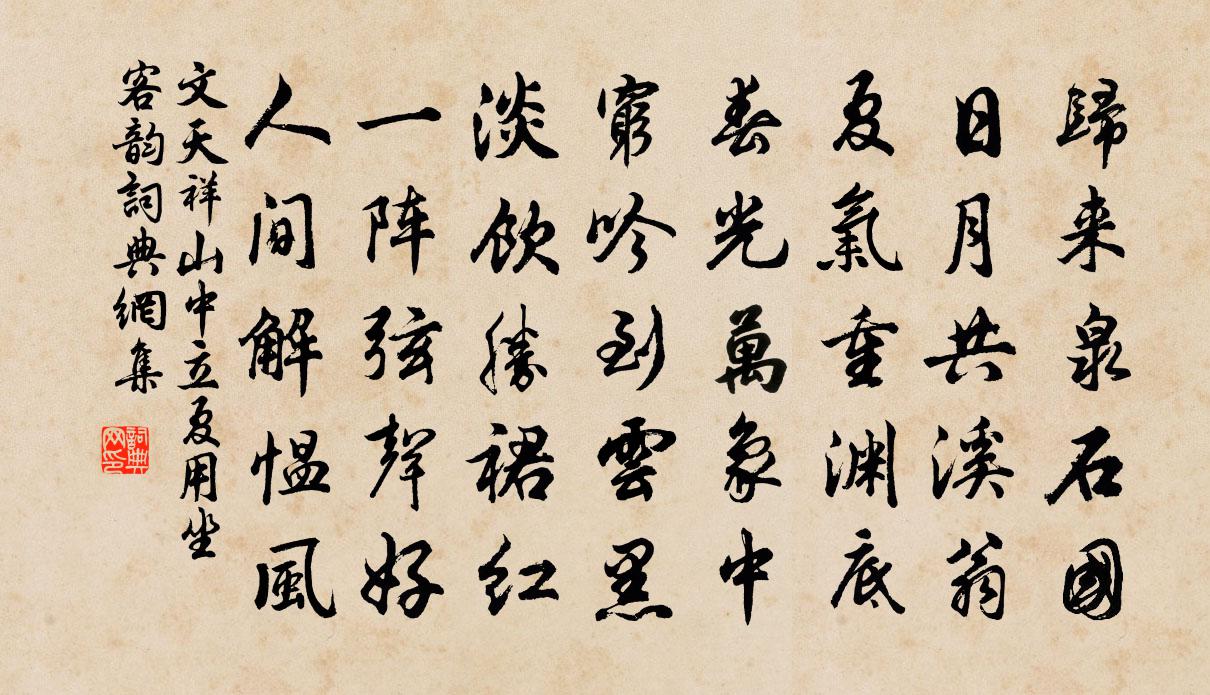 歸来泉石國
日月共溪翁
夏氣重渊底
春光萬象中
窮吟到雲黑
淡飲勝裙红
一阵弦聲好
人间解愠風
文天祥山中立夏用坐
客韵詞典網集
詞典网印